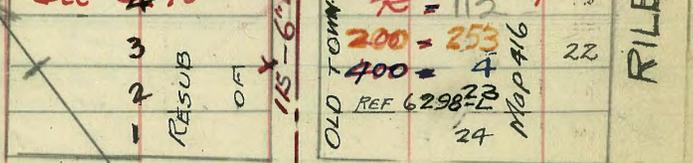 3
2
1
RESUB
OF
115-6"
OLD TOWN
= 113
200 = 253
400 = 4
REF 6298-L
23
24
MAP 416
22
RILE